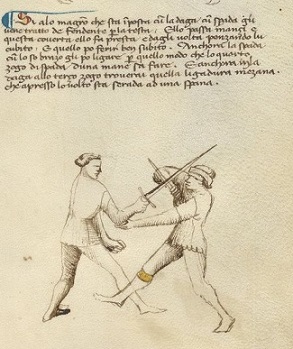 Si alo magro che sta in posta cum la daga cum spada gli
vene tratto de fendente per la testa. Ello passa inanci e
questa coverta ello fa presta e dagli volta penzando lu
cubito. E quello po ferir ben subito. Anchora la spada
cum lo so brazo gli po ligare per quello modo che lo quarto
zogo di spada d'una mane sa fare. E anchora in la
daga allo terzo zogo trovera quella ligadura mezana
che apresso lo volto sta serada ad una spana.